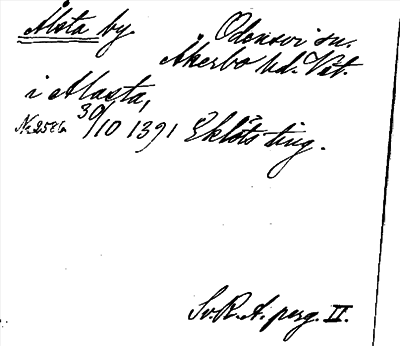 Ålsta by. Odensvi sn.
Åkerbo hd. Vstm.
i Alasta,
N:2586 30/10 1391 Eklöts ting.
Sv. R. A. perg. II.